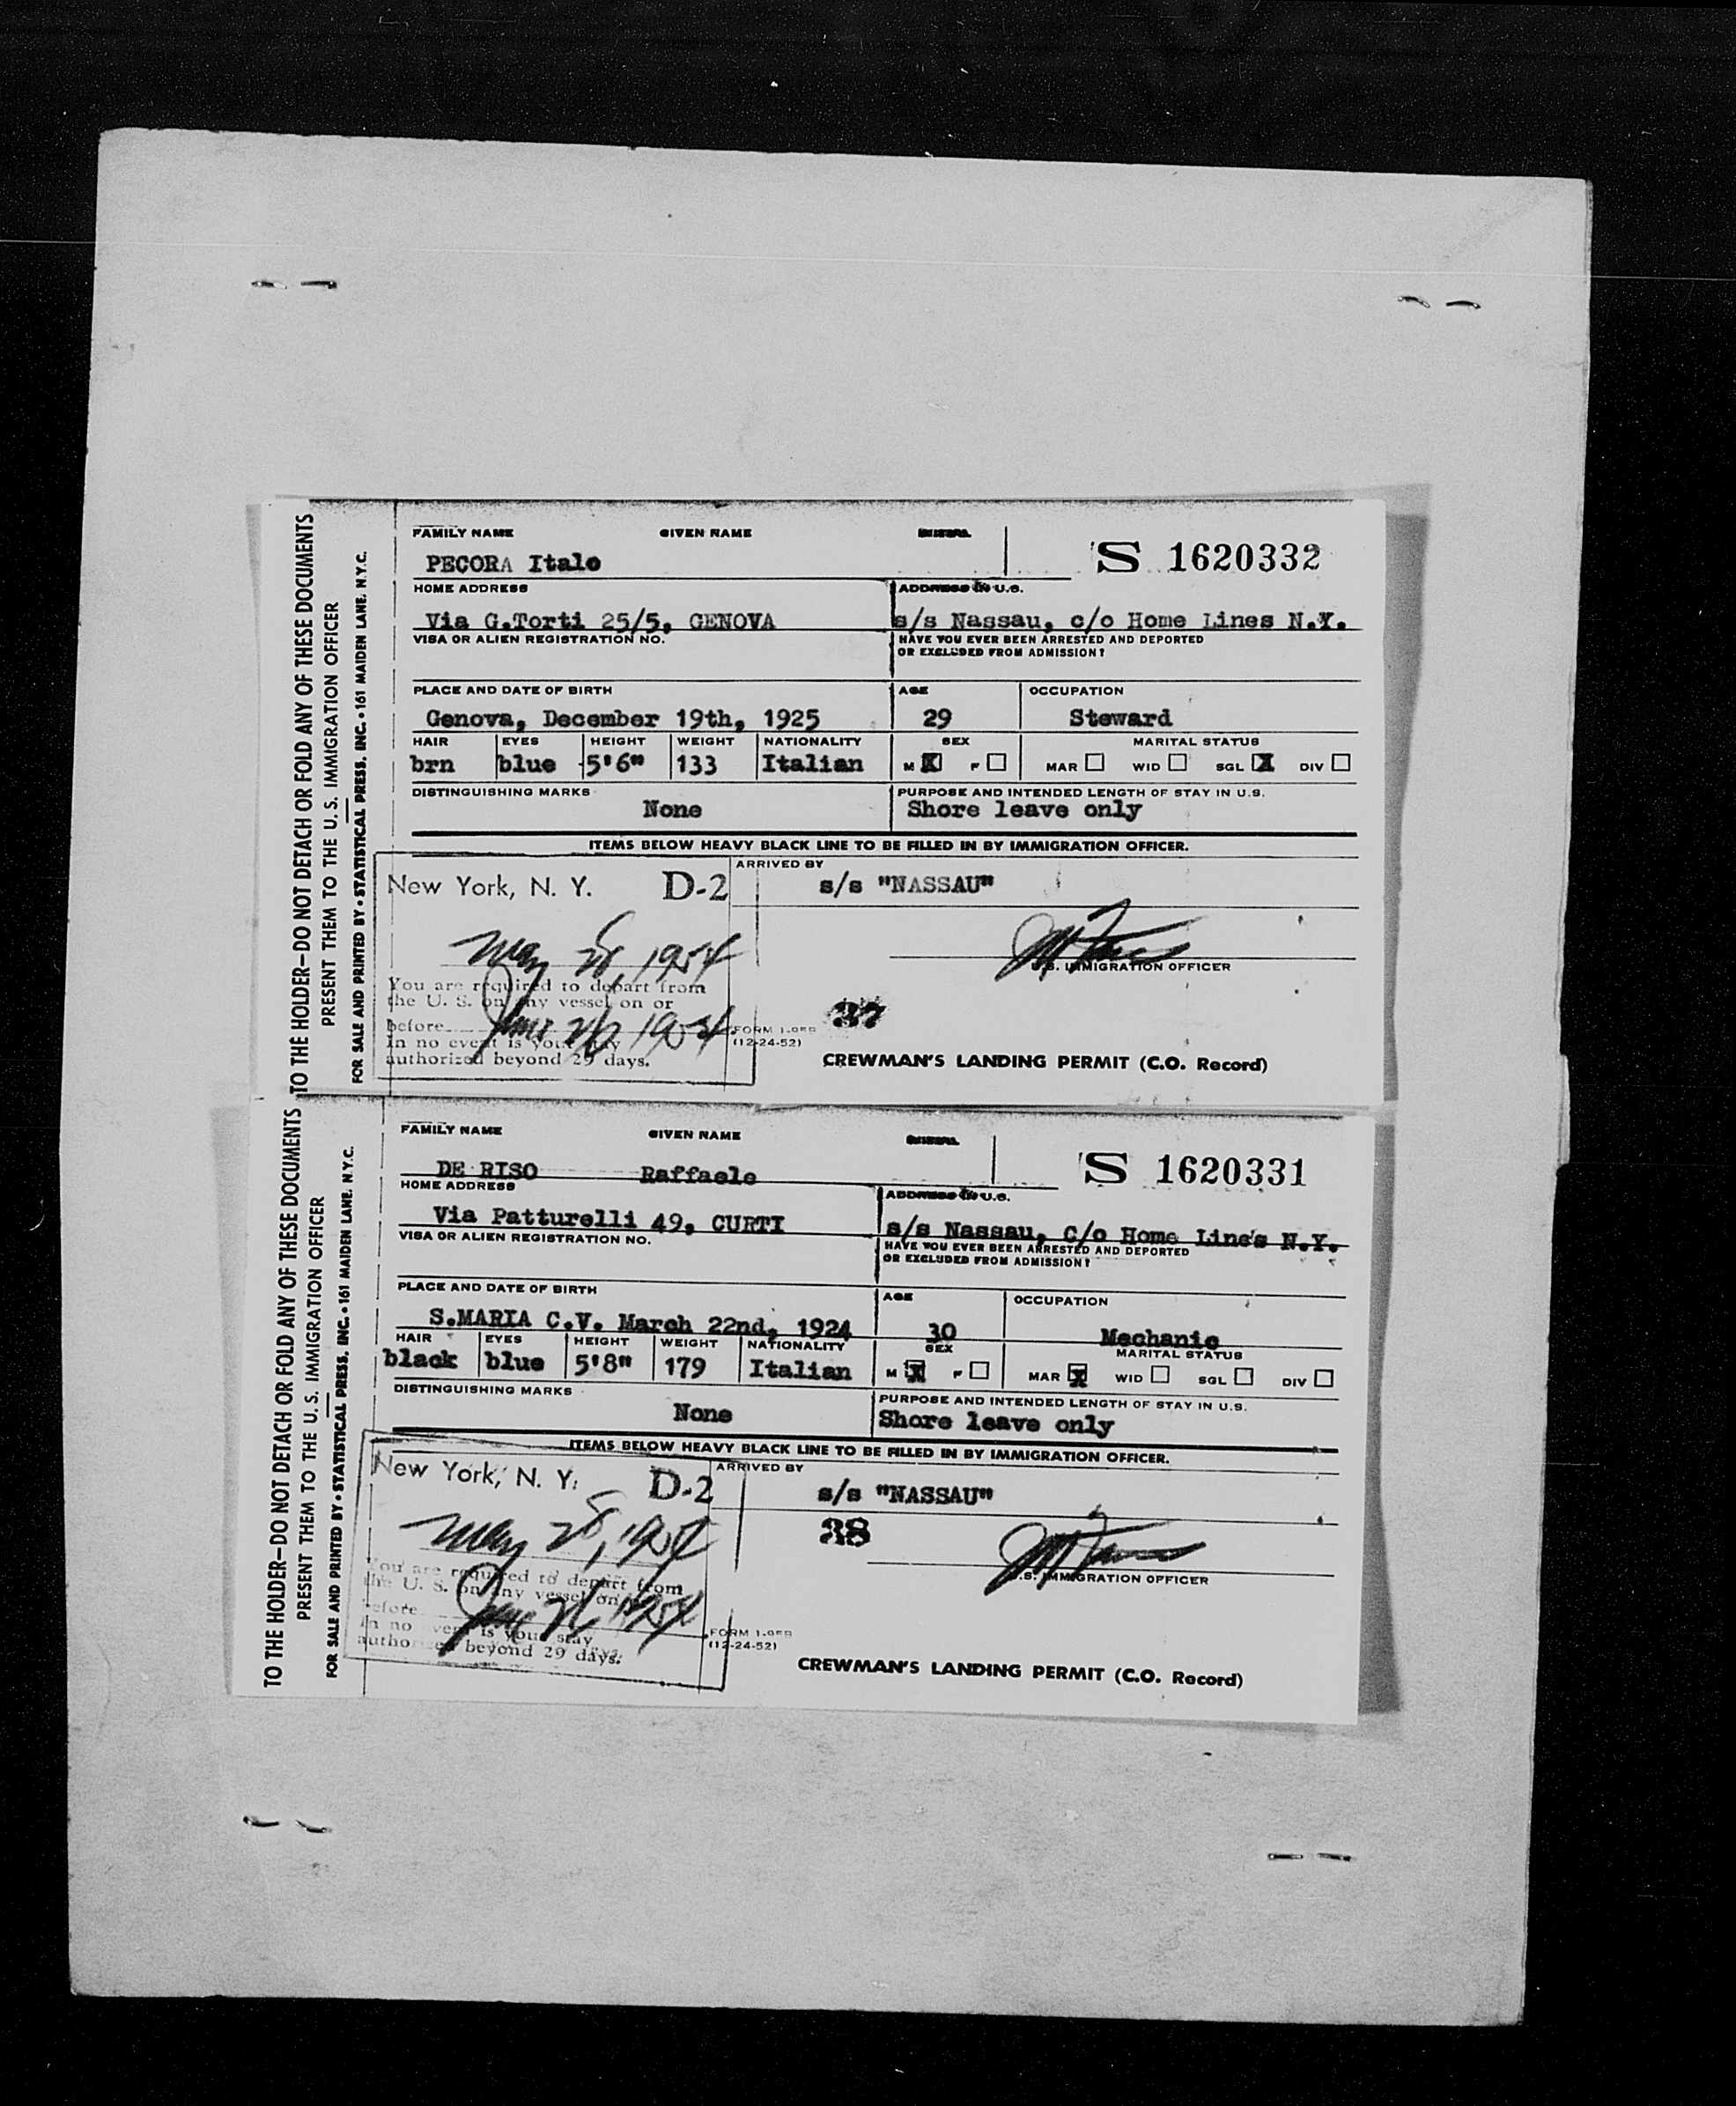 TO THE HOLDER—DO NOT DETACH OR FOLD ANY OF THESE DOCUMENTS
PRESENT THEM TO THE U.S. IMMIGRATION OFFICER
FOR SALE AND PRINTED BY • STATISTICAL PRESS, INC. • 161 MAIDEN LANE, N.Y.C.
FAMILY NAME GIVEN NAME
PECORA Italo S 1620332
HOME ADDRESS ADDRESS IN U.S.
Via G.Torti 25/5, GENOVA s/s Nassau, c/o Home Lines N.Y.
VISA OR ALIEN REGISTRATION NO. HAVE YOU EVER BEEN ARRESTED AND DEPORTED
OR EXCLUDED FROM ADMISSION?
PLACE AND DATE OF BIRTH AGE OCCUPATION
Genova, December 19th, 1925 29 Steward
HAIR EYES HEIGHT WEIGHT NATIONALITY SEX MARITAL STATUS
brn blue 5'6" 133 Italian M X F MAR WID SGL X DIV
DISTINGUISHING MARKS PURPOSE AND INTENDED LENGTH OF STAY IN U.S.
None Shore leave only
ITEMS BELOW HEAVY BLACK LINE TO BE FILLED IN BY IMMIGRATION OFFICER.
ARRIVED BY
New York, N. Y. D-2 s/s "NASSAU"
May 28, 1954
U.S. IMMIGRATION OFFICER
You are required to depart from
the U. S. on any vessel on or
before June 26 1954
FORM I-95B
37
In no event is your stay
(12-24-52)
authorized beyond 29 days.
CREWMAN'S LANDING PERMIT (C.O. Record)
TO THE HOLDER—DO NOT DETACH OR FOLD ANY OF THESE DOCUMENTS
PRESENT THEM TO THE U.S. IMMIGRATION OFFICER
FOR SALE AND PRINTED BY • STATISTICAL PRESS, INC. • 161 MAIDEN LANE, N.Y.C.
FAMILY NAME GIVEN NAME
DE RISO Raffaele S 1620331
HOME ADDRESS ADDRESS IN U.S.
Via Patturelli 49, CURTI s/s Nassau, C/o Home Lines N.Y.
VISA OR ALIEN REGISTRATION NO. HAVE YOU EVER BEEN ARRESTED AND DEPORTED
OR EXCLUDED FROM ADMISSION?
PLACE AND DATE OF BIRTH AGE OCCUPATION
S.MARIA C.V. March 22nd, 1924 30 Mechanic
HAIR EYES HEIGHT WEIGHT NATIONALITY SEX MARITAL STATUS
black blue 5'8" 179 Italian M X F MAR X WID SGL DIV
DISTINGUISHING MARKS PURPOSE AND INTENDED LENGTH OF STAY IN U.S.
None Shore leave only
ITEMS BELOW HEAVY BLACK LINE TO BE FILLED IN BY IMMIGRATION OFFICER.
ARRIVED BY
New York, N. Y. D-2 s/s "NASSAU"
38
May 28, 1954
U.S. IMMIGRATION OFFICER
You are required to depart from
the U. S. on any vessel on
before June 26 1954
FORM I-95B
In no event is your stay
(12-24-52)
authorized beyond 29 days.
CREWMAN'S LANDING PERMIT (C.O. Record)